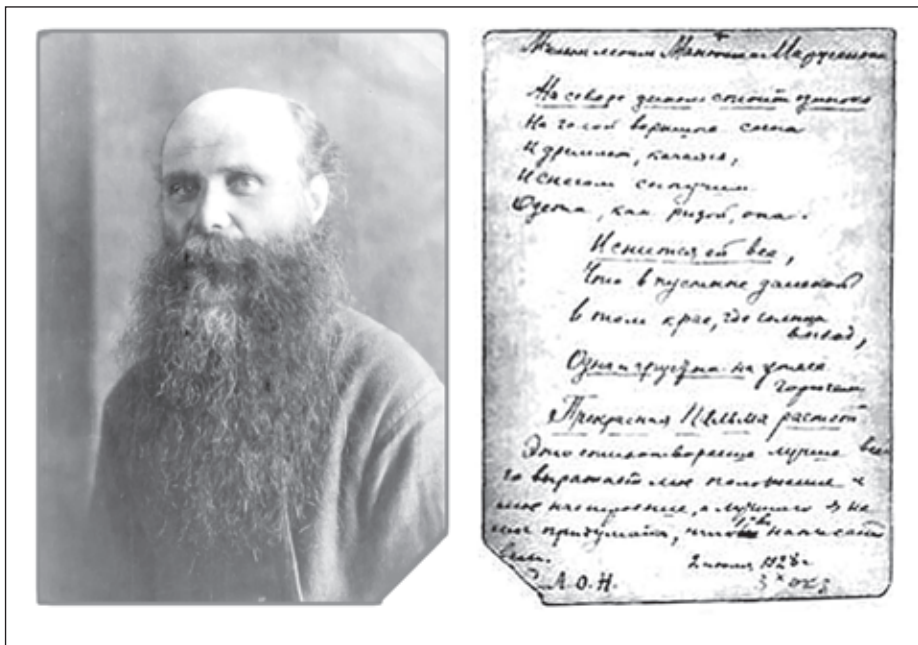 Милым моим Манюши и Марусеньки
На севере диком стоит одиноко
На голой вершине сосна
И дремлет, качаясь,
И снегом сыпучим
Одета, как ризой, она.
И снится ей все,
Что в пустыне далекой
В том крае, где солнца
восход,
Одна и грустна на утесе
горючем
Прекрасная Пальма растет
Это стихотворение лучше все
го выражает мое положение и
мое настроение, а лучшего я не
мог придумать, чтобы написать
Вам.
2 июля 1928 г.
Л.О.Н. 3 х экз